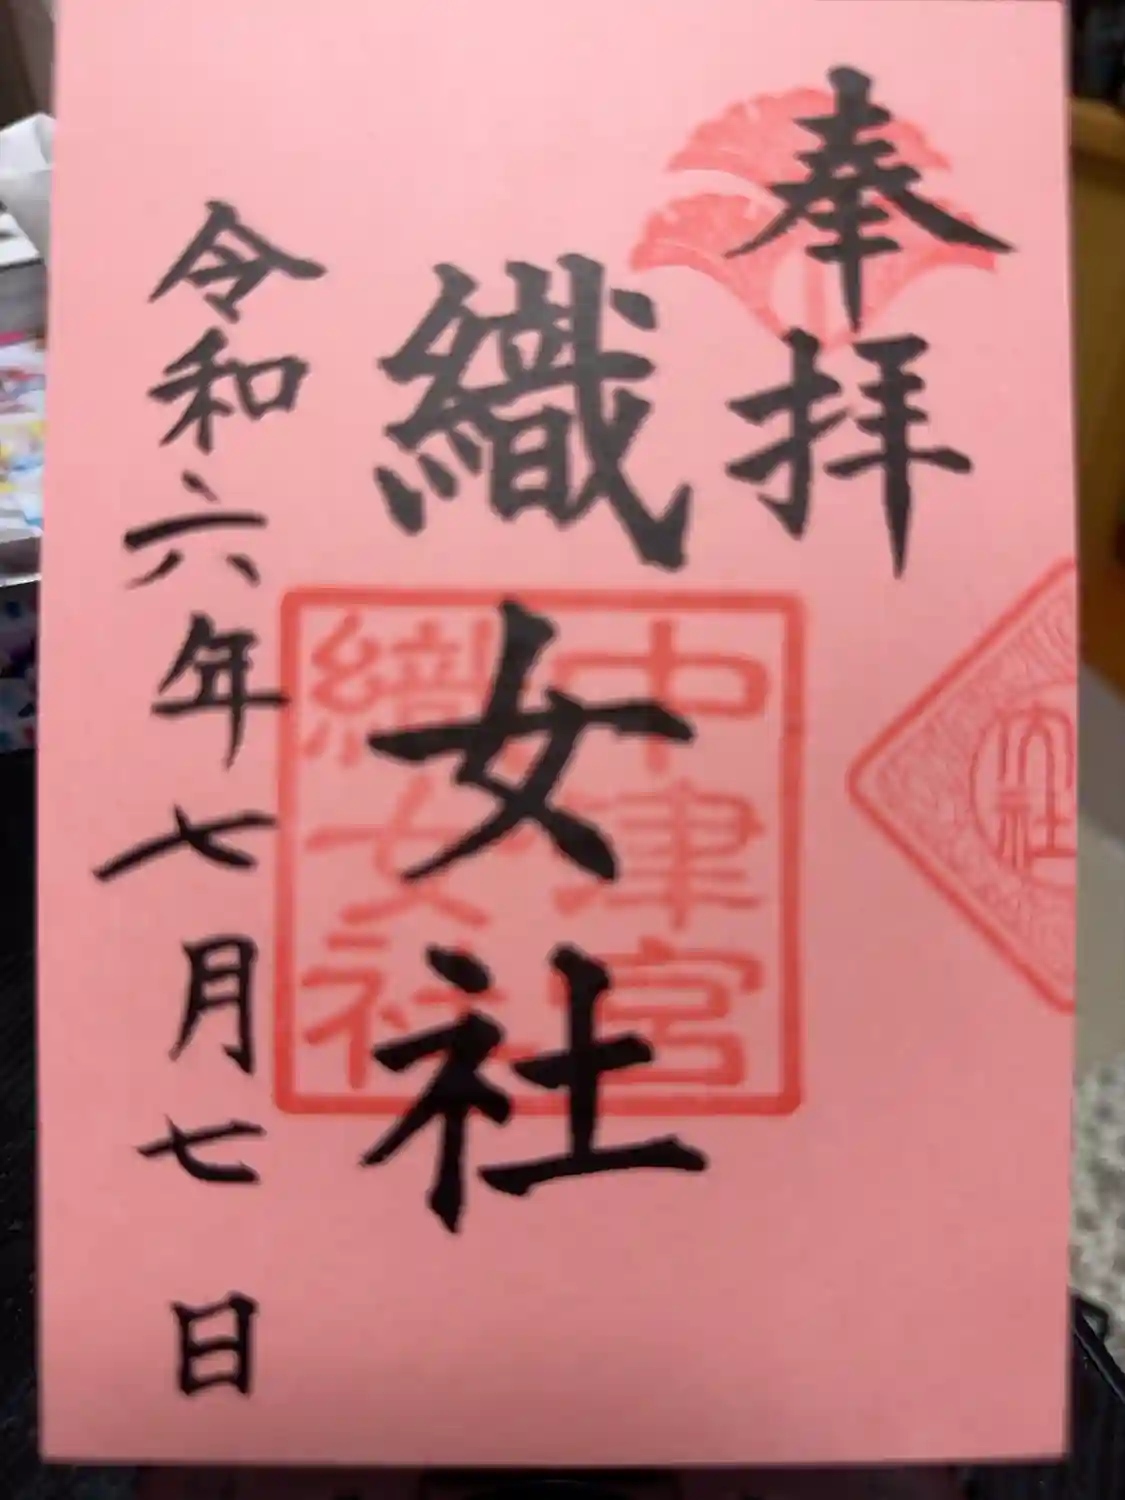 奉拝
織女社
中津宮
織女社
令和六年七月七日